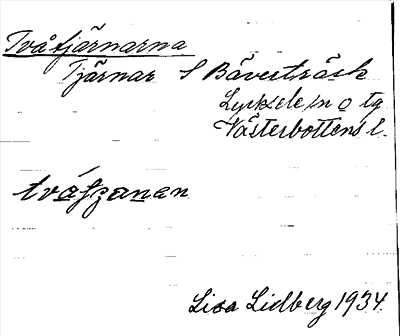 Tvåtjärnarna
Tjärnar S Bäverträsk
Lycksele sn o tg
Västerbottens l.
tvåtjanan
Lisa Lidberg 1934